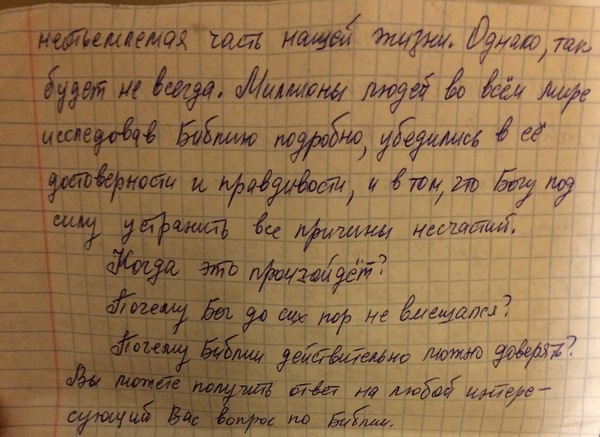 неотъемлемая часть нашей жизни. Однако, так
будет не всегда. Миллионы людей во всём мире
исследовав Библию подробно, убедились в её
достоверности и правдивости, и в том, что Богу под
силу устранить все причины несчастий.
Когда это произойдёт?
Почему Бог до сих пор не вмешался?
Почему Библии действительно можно доверять?
Вы можете получить ответ на любой интере-
сующий Вас вопрос по Библии.